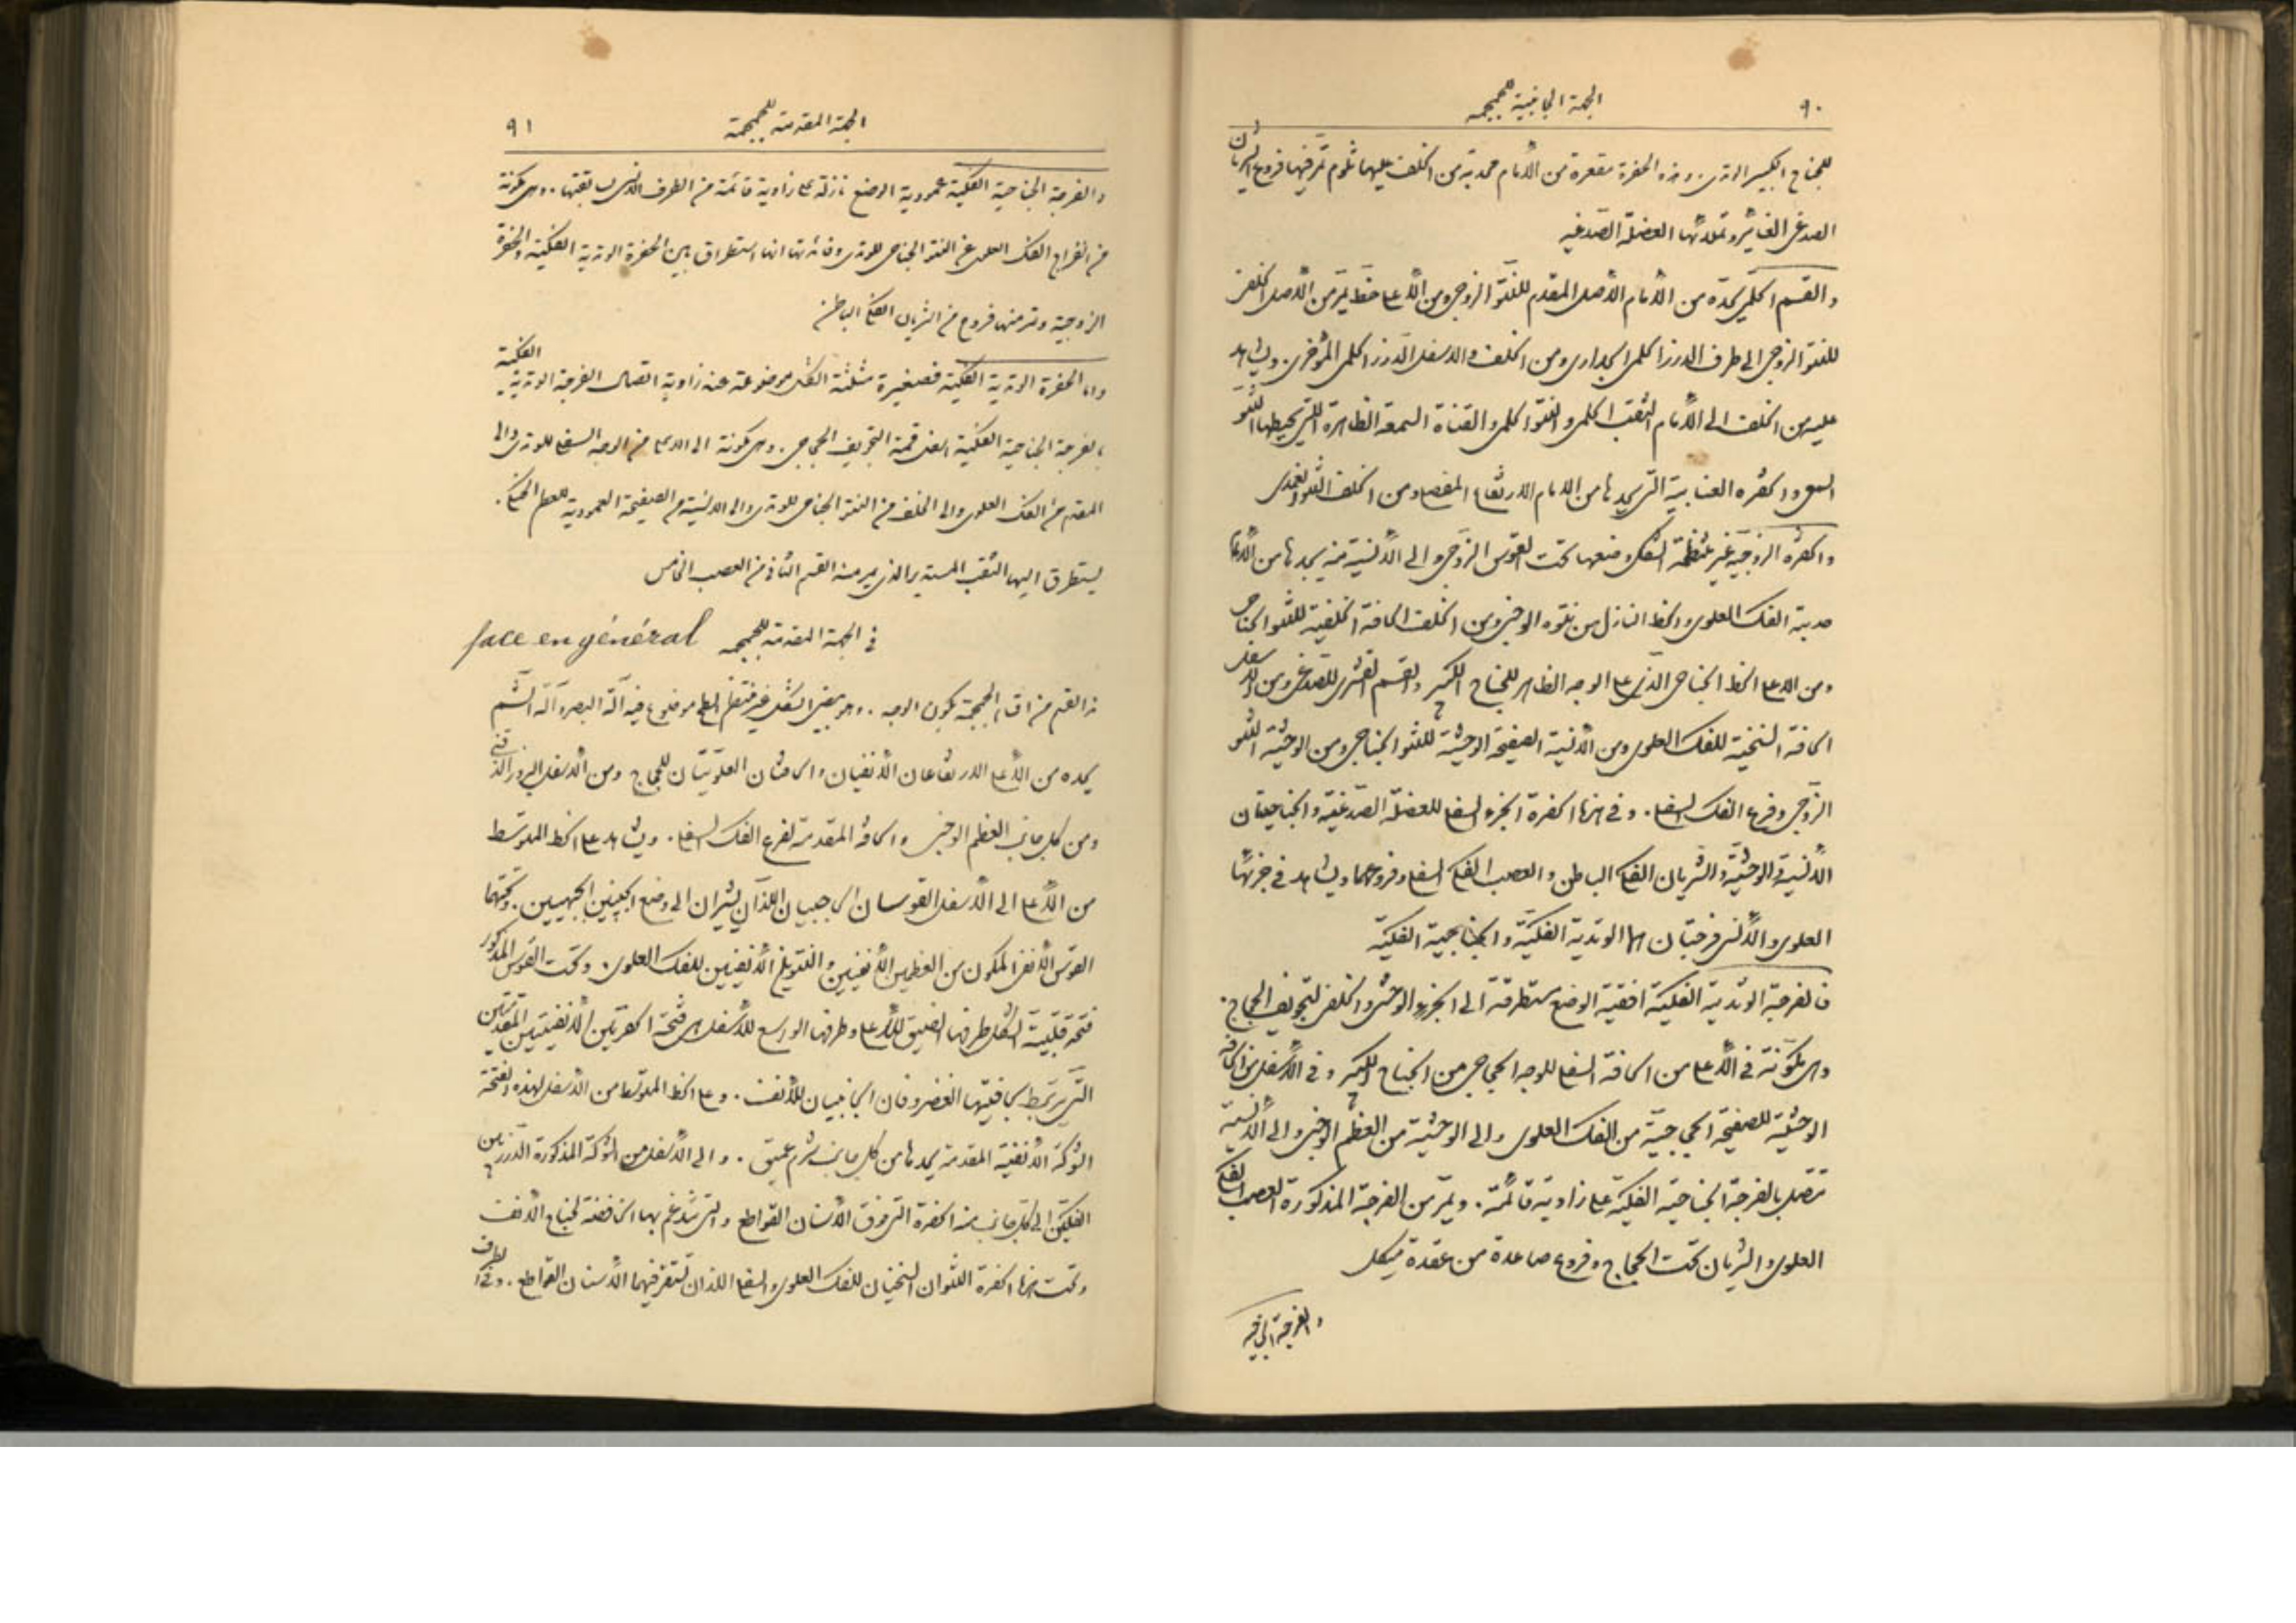 ٩٠
الجهة الجانبية للجمجمه
للجناح الكبير الوتدى. وهذه الحفرة مقعرة من الأمام محدبة من الخلف عليها ثلوم تمر فيها فروع الشريان
الصدغى الغائر وتملأها العضلة الصدغيه
والقسم الحلمى يحده من الأمام الأصل المقدم للنتو الزوجى ومن الأعلى خط يمر من الأصل الخلفى
للنتو الزوجى الى طرف الدرز الحلمى الجدارى ومن الخلف والاسفل الدرز الحلمى المؤخرى. ويشاهد
عليه من الخلف الى الأمام الثقب الحلمى والنتو الحلمى والقناة السمعية الظاهرة التى يحيطها النتو
السمعى والحفره العنابية التى يحدها من الامام الارتفاع المفصلى ومن الخلف النتو الغمدى
والحفره الزوجية غير منتظمة الشكل وضعها تحت القوس الزوجى والى الأنسية منه يحدها من الأمام
حدبة الفك العلوى والخط النازل من نتوه الوجنى ومن الخلف الحافة الخلفية للنتو الجناحى
ومن الاعلى الخط الجناحى الذى على الوجه الظاهر للجناح الكبير والقسم القشرى للصدغى ومن الاسفل
الحافة السنخية للفك العلوى ومن الأنسية الصفيحة الوحشية للنتو الجناحى ومن الوحشية النتو
الزوجى وفرع الفك السفلى. وفى هذه الحفرة الجزء السفلى للعضلة الصدغية والجناحيتان
الأنسية والوحشية والشريان الفكى الباطن والعصب الفكى السفلى وفروعهما ويشاهد فى جزئها
العلوى والأنسى فرجتان هما الوتدية الفكية والجناحية الفكية
فالفرجة الوتدية الفكية افقية الوضع مستطرقة الى الجزء الوحشى والخلفى لتجويف الحجاج.
وهى مكونة فى الأعلى من الحافة السفلى للوجه الحجاجى من الجناح الكبير وفى الأسفل من الحافة
الوحشية للصفيحة الحجاجية من الفك العلوى والى الوحشية من العظم الوجنى والى الأنسية
تتصل بالفرجة الجناحية الفكية على زاوية قائمة. ويمر من الفرجة المذكورة العصب الفكى
العلوى والشريان تحت الحجاج وفروع صاعدة من عقدة ميكل
والفرجة الجناحية
الجهة المقدمة للجمجمة
٩١
والفرجة الجناحية الفكية عمودية الوضع نازلة على زاوية قائمة من الطرف الانسى لسابقتها.. وهى مكونة
من انفراج الفك العلوى عن النتو الجناحى للوتدى وفائدتها انها استطراق بين الحفرة الوتدية الفكية والحفرة
الزوجية وتمر منها فروع من الشريان الفكى الباطن
واما الحفرة الوتدية الفكية فصغيرة مثلثة الشكل موضوعة عند زاوية اتصال الفرجة الوتدية الفكية
بالفرجة الجناحية الفكية اعنى قمة التجويف الحجاجى. وهى مكونة الى الاعلى من الوجه السفلى للوتدى والى
المقدم من الفك العلوى والى الخلف من النتو الجناحى للوتدى والى الانسية من الصفيحة العمودية للعظم الحنكى.
يستطرق اليها الثقب المستدير الذى يمر منه القسم الثانى من العصب الخامس
فى الجهة المقدمة للجمجمه face en général
هذا القسم من اقسام الجمجمة يكون الوجه.. وهو بيضى الشكل غير منتظم السطح موضوع فيه آلة البصر وآلة الشم
يحده من الأعلى الارتفاعان الأنفيان والحافتان العلويتان للحجاج ومن الأسفل البروز الذقنى
ومن كل جانب العظم الوجنى والحافة المقدمة لفرع الفك السفلى. ويشاهد على الخط المتوسط
من الأعلى الى الأسفل القوسان الحاجبيان اللذان يشيران الى وضع الجيبين الجبهيين. وتحتهما
القوس الأنفى المكون من العظمين الأنفيين والنتويين الأنفيين للفك العلوى. وتحت القوس المذكور
فتحة قلبية الشكل طرفها الضيق للأعلى وطرفها الواسع للأسفل هى فتحة الحفرتين الأنفيتين المقدمتين
التى يرتبط بحافتيها الغضروفان الجانبيان للأنف. وعلى الخط المتوسط من الأسفل لهذه الفتحة
الشوكة الأنفية المقدمة يحدها من كل جانب شرم عميق. والى الأسفل من الشوكة المذكورة الدرز بين
الفكين والى كل جانب منه الحفرة التى فوق الأسنان القواطع والتى تندغم بها الخافضة لجناح الأنف
وتحت هذه الحفرة النتوان السنخيان للفك العلوى والسفلى اللذان تستقر فيهما الأسنان القواطع. وفى